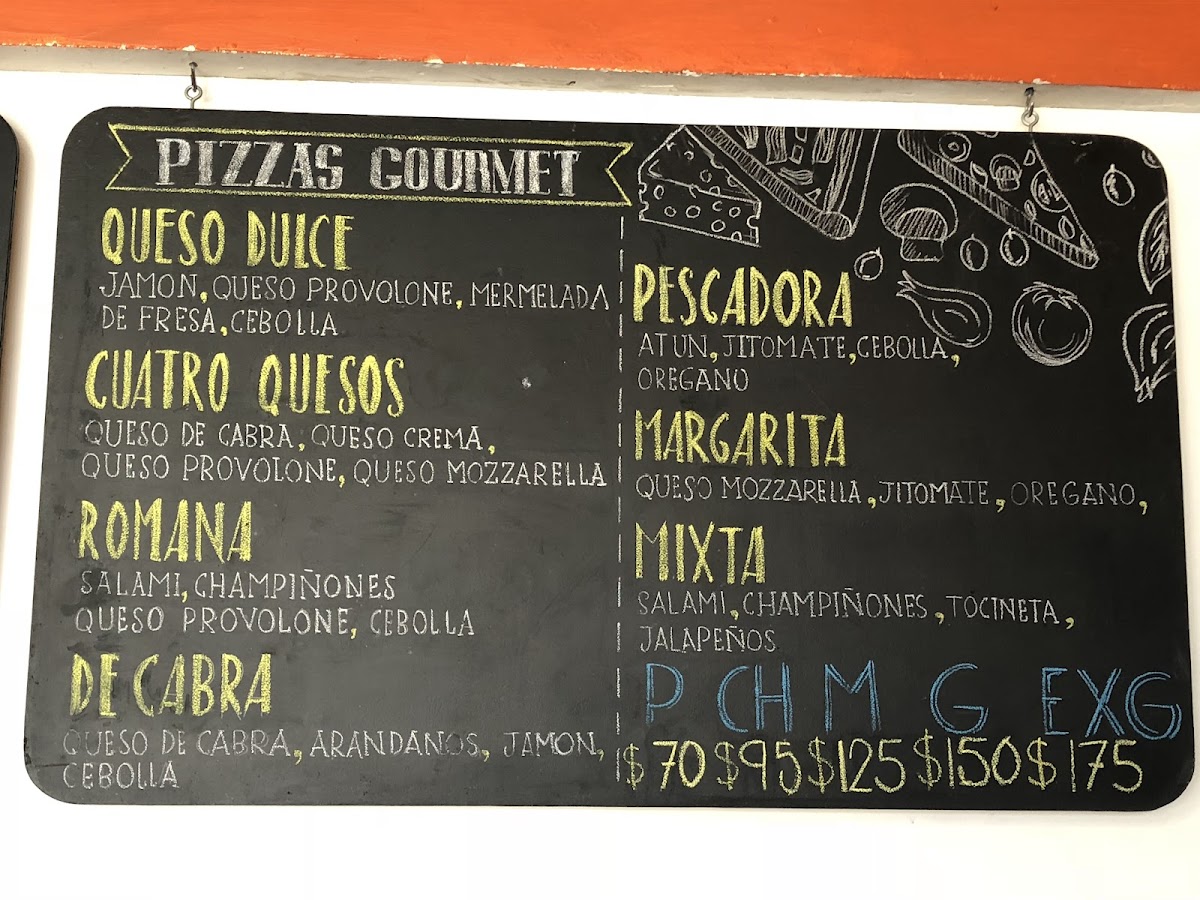 PIZZAS GOURMET
QUESO DULCE
JAMON, QUESO PROVOLONE, MERMELADA
DE FRESA, CEBOLLA
CUATRO QUESOS
QUESO DE CABRA, QUESO CREMA,
QUESO PROVOLONE, QUESO MOZZARELLA
ROMANA
SALAMI, CHAMPIÑONES
QUESO PROVOLONE, CEBOLLA
DE CABRA
QUESO DE CABRA, ARANDANOS, JAMON,
CEBOLLA
PESCADORA
ATUN, JITOMATE, CEBOLLA,
OREGANO
MARGARITA
QUESO MOZZARELLA, JITOMATE, OREGANO,
MIXTA
SALAMI, CHAMPIÑONES, TOCINETA,
JALAPEÑOS
P CH M G EXG
$70 $95 $125 $150 $175